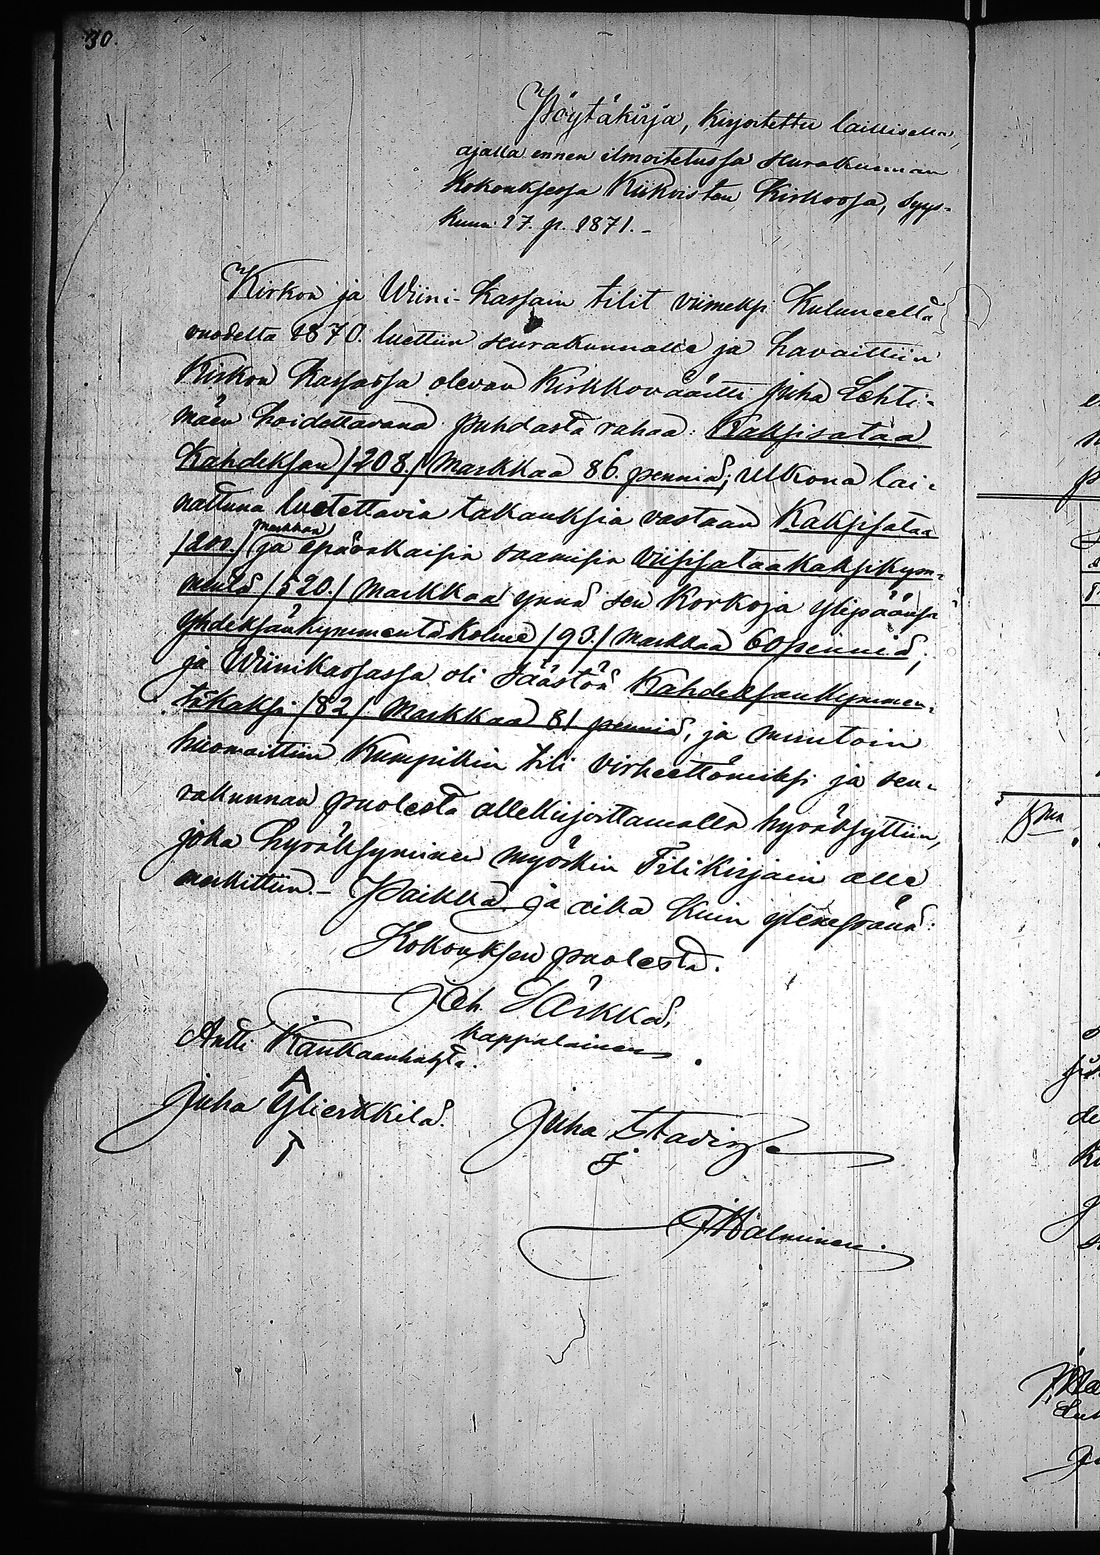 30.
Pöytäkirja, kirjoitettu laillisella
ajalla ennen ilmoitetussa seurakunnan
kokouksessa Kiikoisten kirkossa, Syys-
kuun 17. p. 1871. -
Kirkon ja Wiini-kassain tilit viimeksi kuluneelta
vuodelta 1870. luettiin seurakunnalle ja havaittiin
Kirkon kassassa olevan Kirkkoväärtti Juha Lehti-
mäen hoidettavana puhdasta rahaa: Kaksisataa
kahdeksan /208./ Markkaa 86. penniä; Ulkona lai-
nattuna luotettavia takauksia vastaan Kaksisataa
/200./ markkaa ja epävakaisia saamisia viisisataakaksikym-
mentä /520./ Markkaa ynnä sen Korkoja ylipäänsä
yhdeksänkymmentäkolme /93./ Markkaa 60 penniä;
ja Wiinikassassa oli säästöä Kahdeksankymmen-
täkaksi /82/ Markkaa 81 penniä, ja muutoin
huomattiin kumpikin tili virheettömiksi ja seu-
rakunnan puolesta allekirjoittamalla hyväksyttiin,
joka hyväksyminen myöskin Tilikirjain alle
merkittiin. - Paikka ja aika kuin ylempänä:
Kokouksen puolesta.
Joh. Särkkä,
kappalainen.
Antti Kaukaanhahta.
Juha Ylierkkilä.
Juha